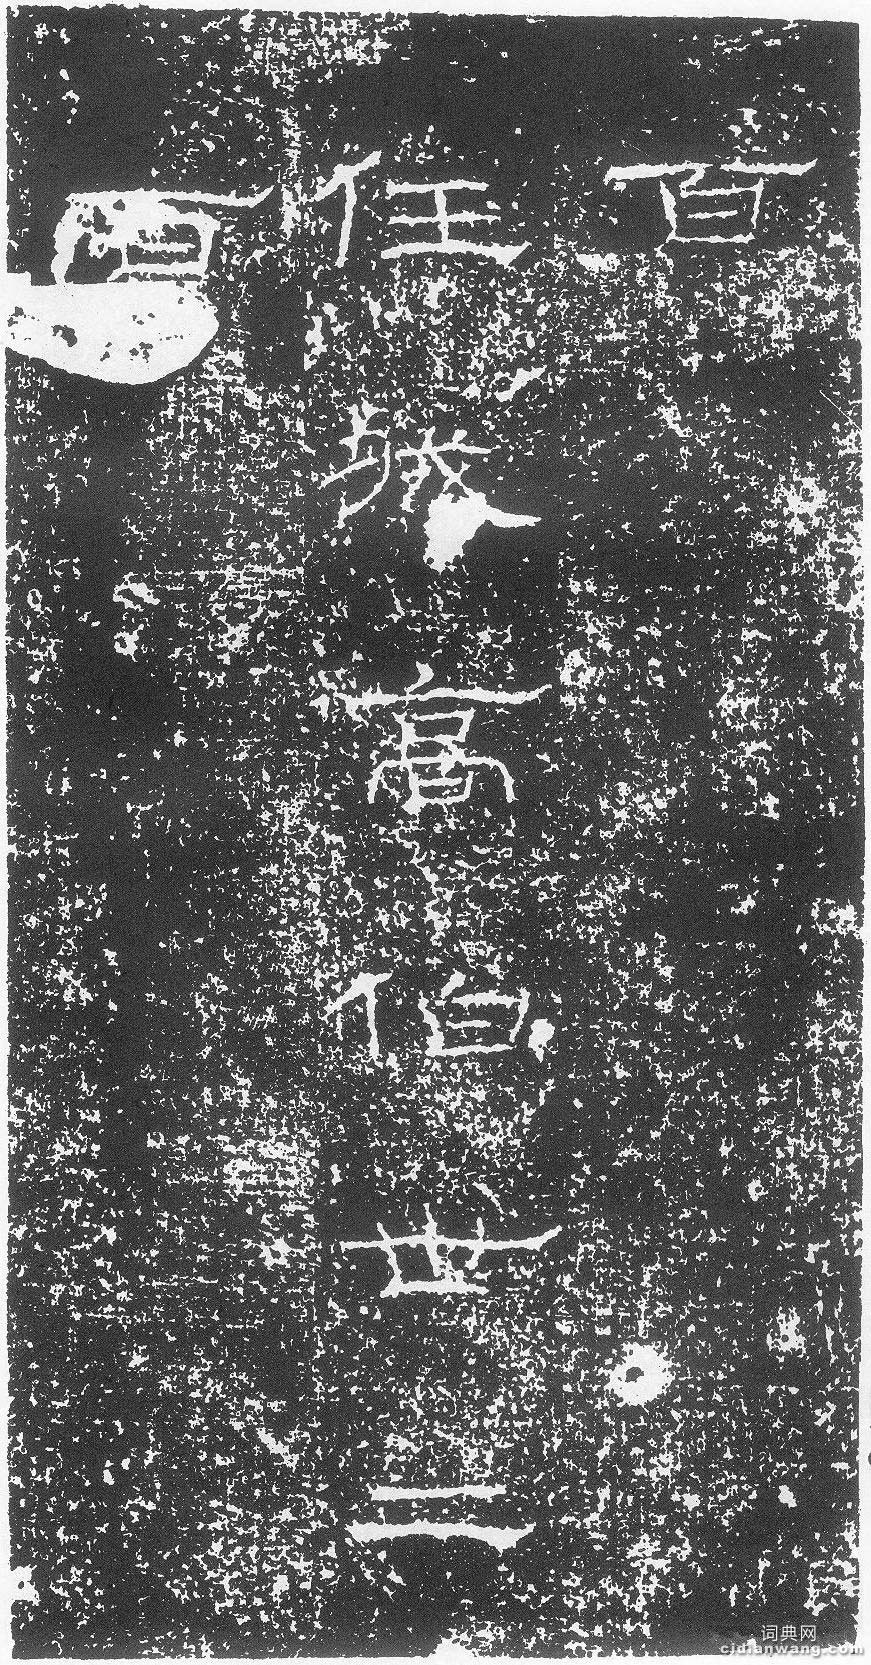 百
任城高伯世二
百
词典网
cidianwang.com